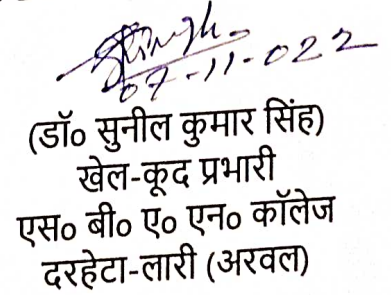 SSingh
07-11-022
(डॉ० सुनील कुमार सिंह)
खेल-कूद प्रभारी
एस० बी० ए० एन० कॉलेज
दरहेटा-लारी (अरवल)